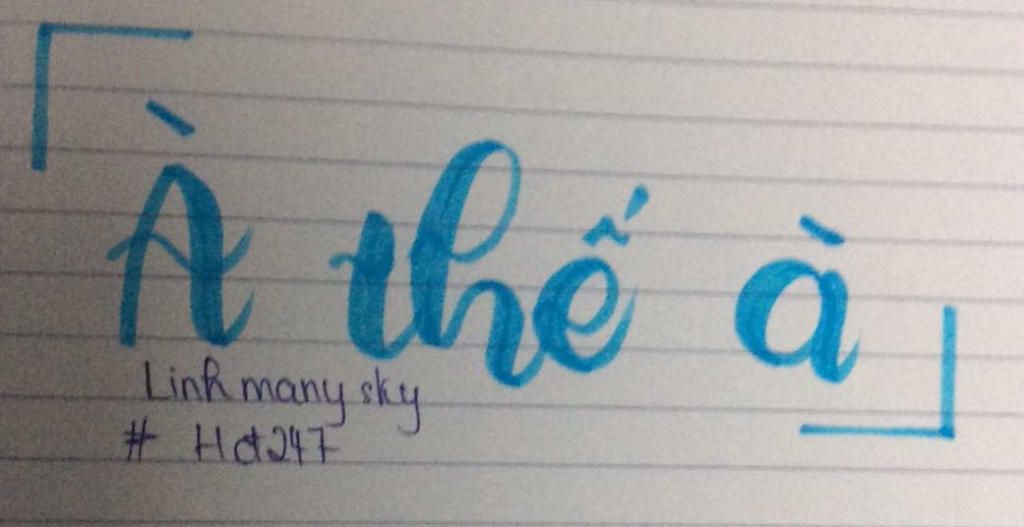 À thế à
Linh many sky
# Hd247